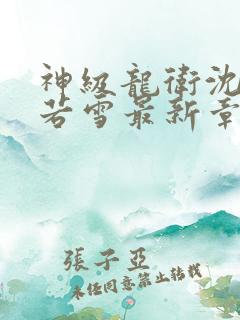 神級龍衛沈
若雪最新章
張子亞
未經同意禁止轉載